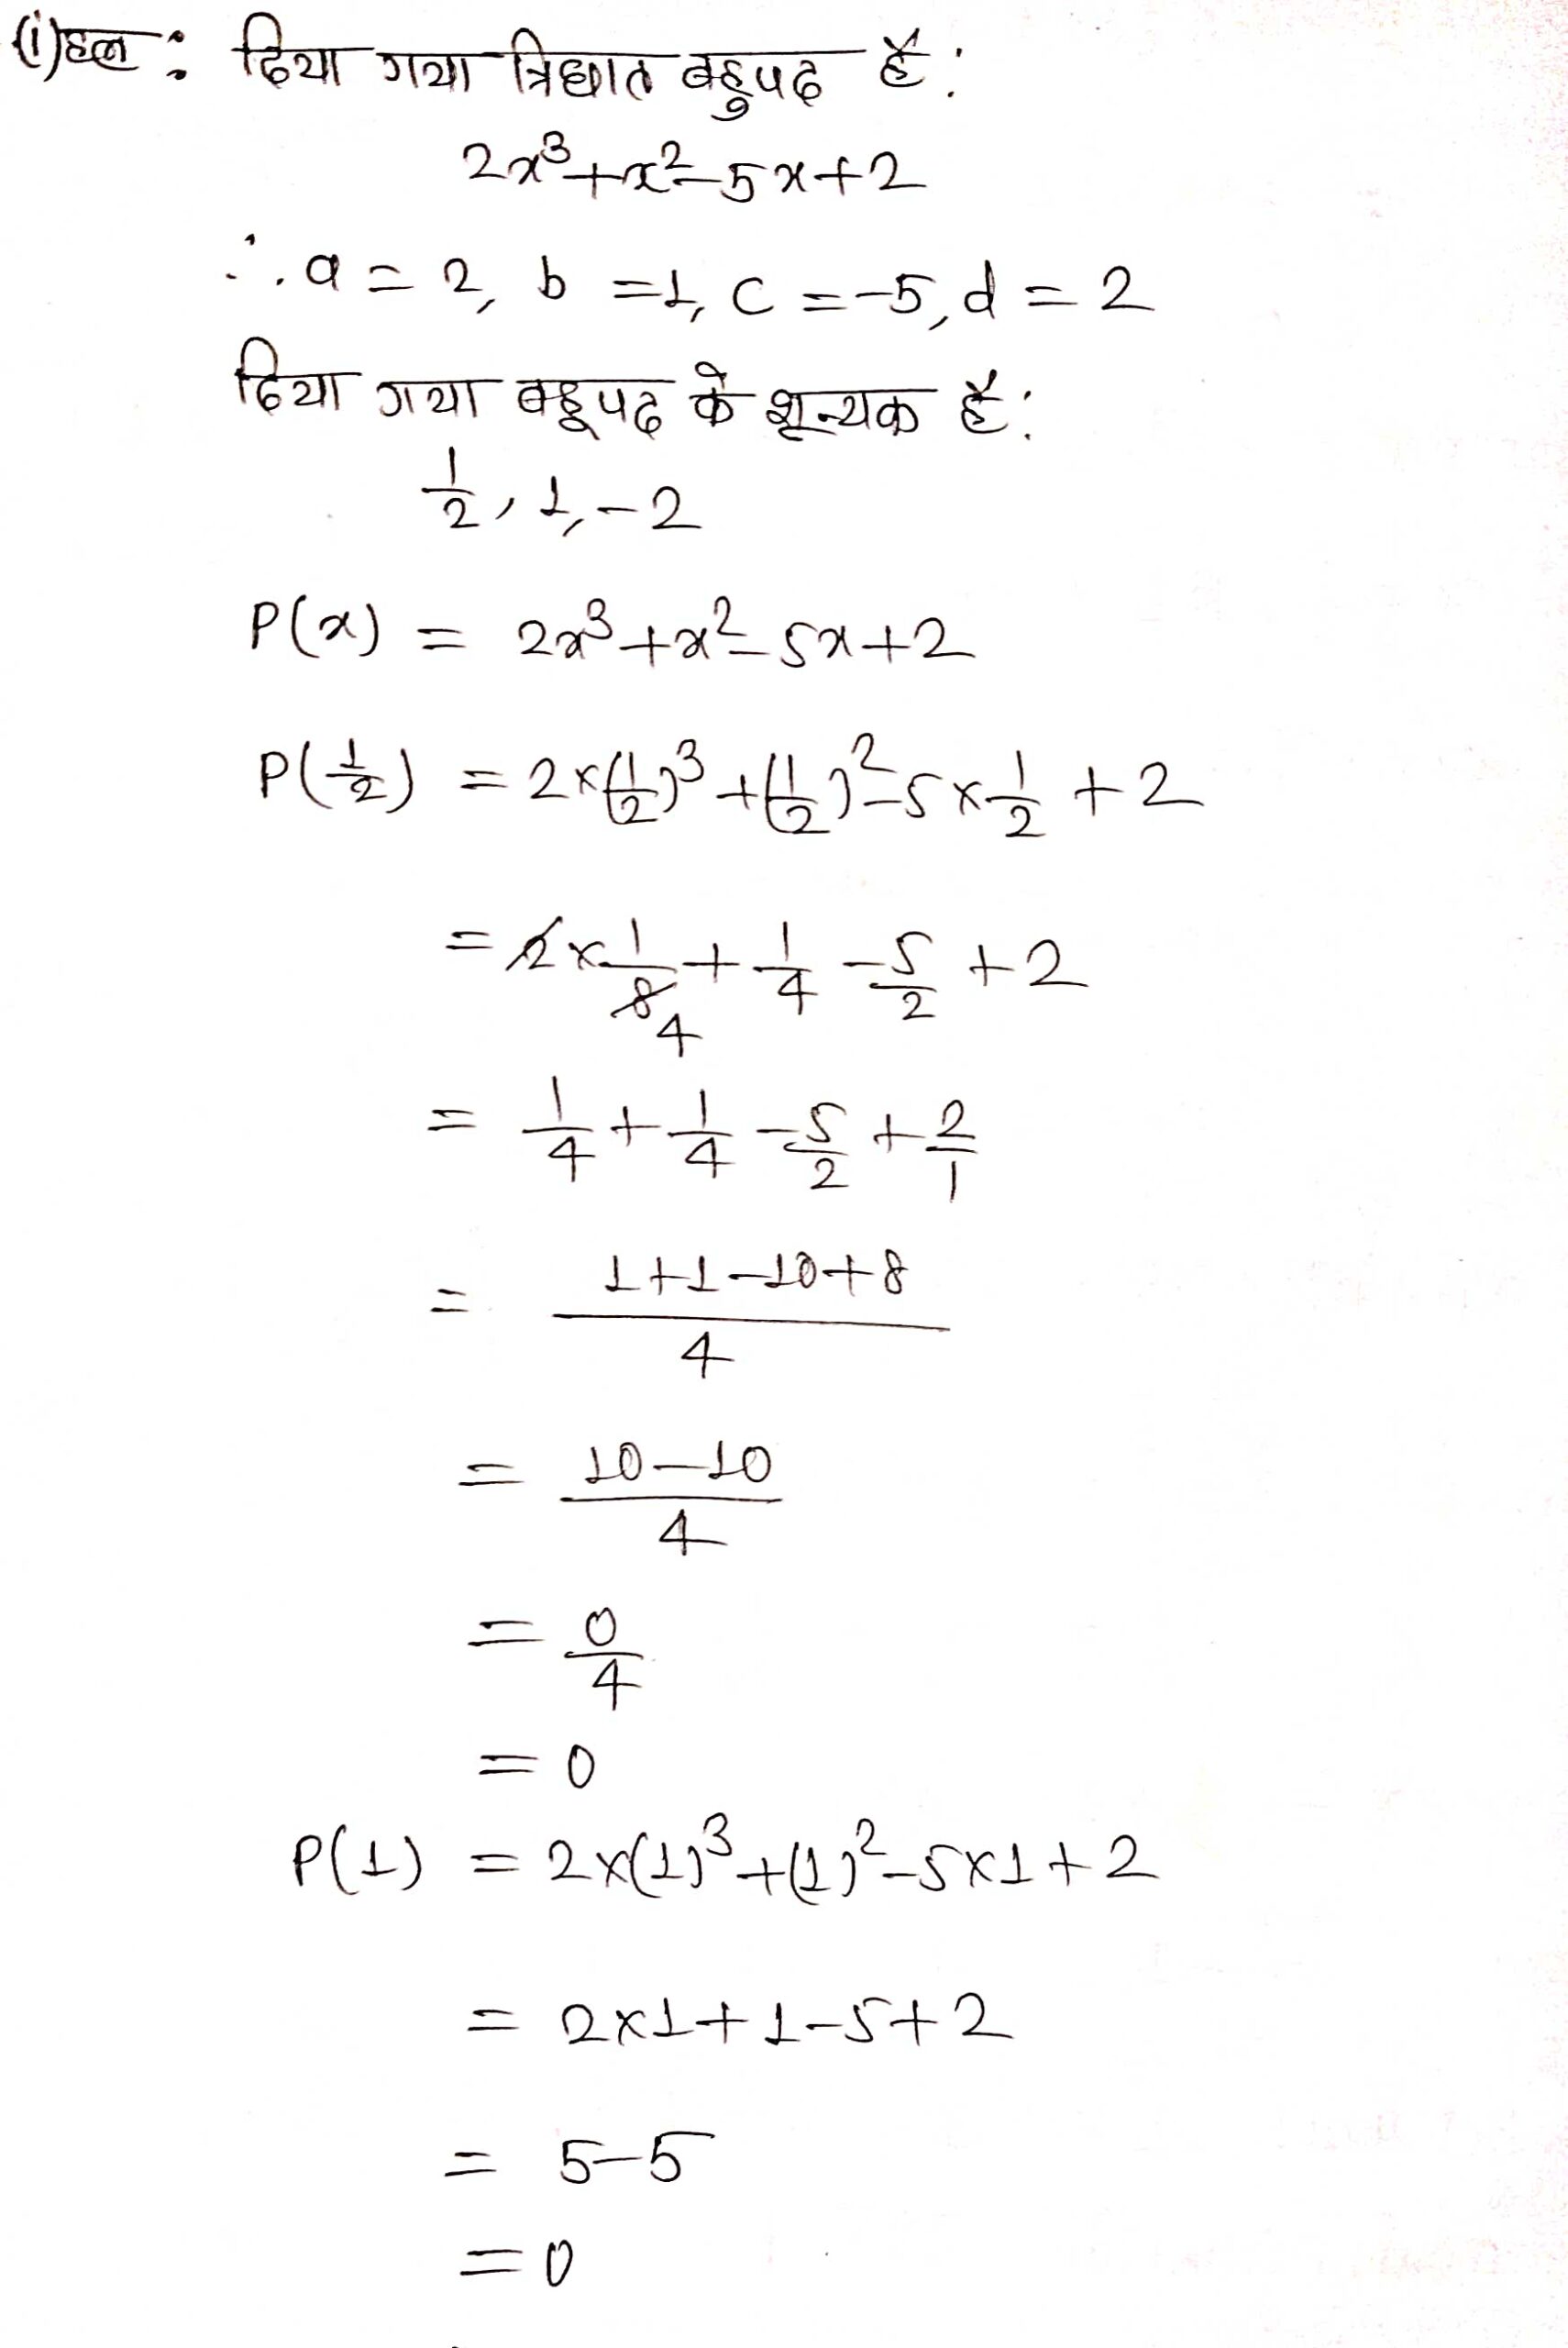 (i) हल : दिया गया त्रिघात बहुपद है :
2x³+x²-5x+2
∴ a = 2, b = 1, c = -5, d = 2
दिया गया बहूपद के शून्यक है :
1/2, 1, -2
P(x) = 2x³+x²-5x+2
P(1/2) = 2×(1/2)³+(1/2)²-5×1/2+2
= 2×1/8 4 + 1/4 - 5/2 + 2
= 1/4 + 1/4 - 5/2 + 2/1
= 1+1-10+8 / 4
= 10-10 / 4
= 0/4
= 0
P(1) = 2×(1)³+(1)²-5×1+2
= 2×1+1-5+2
= 5-5
= 0